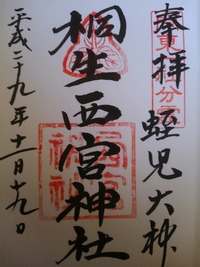 奉拝 蛭児大神
桐生西宮神社
平成二十九年十一月十九日